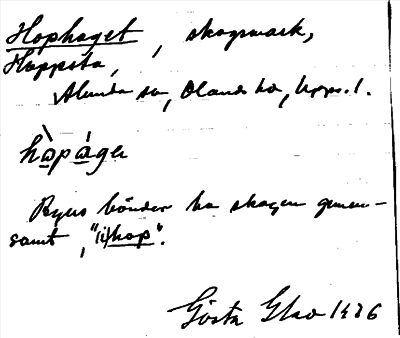 Hophaget, skogsmark,
Hoppsta,
Alunda sn, Olands hd, Upps. l.
hòpáge
Byns bönder ha skogen gemen-
samt, "(i)hop".
Gösta Glad 1936